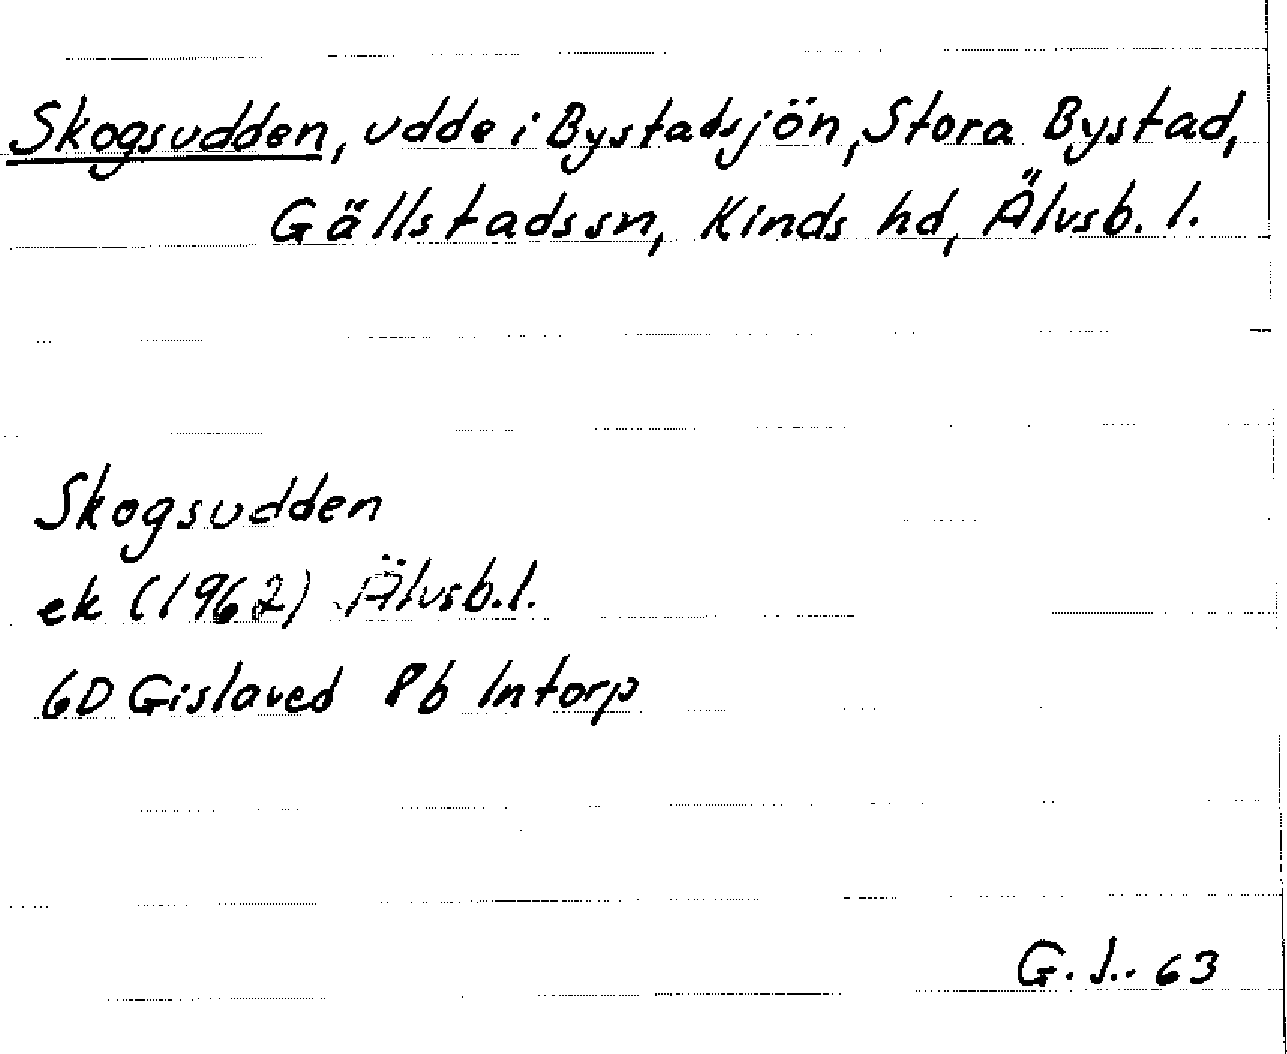 Skogsudden, udde i Bystadsjön, Stora Bystad,
Gällstadssn, Kinds hd, Älvsb. l.
Skogsudden
ek (1962) Älvsb.l.
6D Gislaved 8b Intorp
G. J.. 63